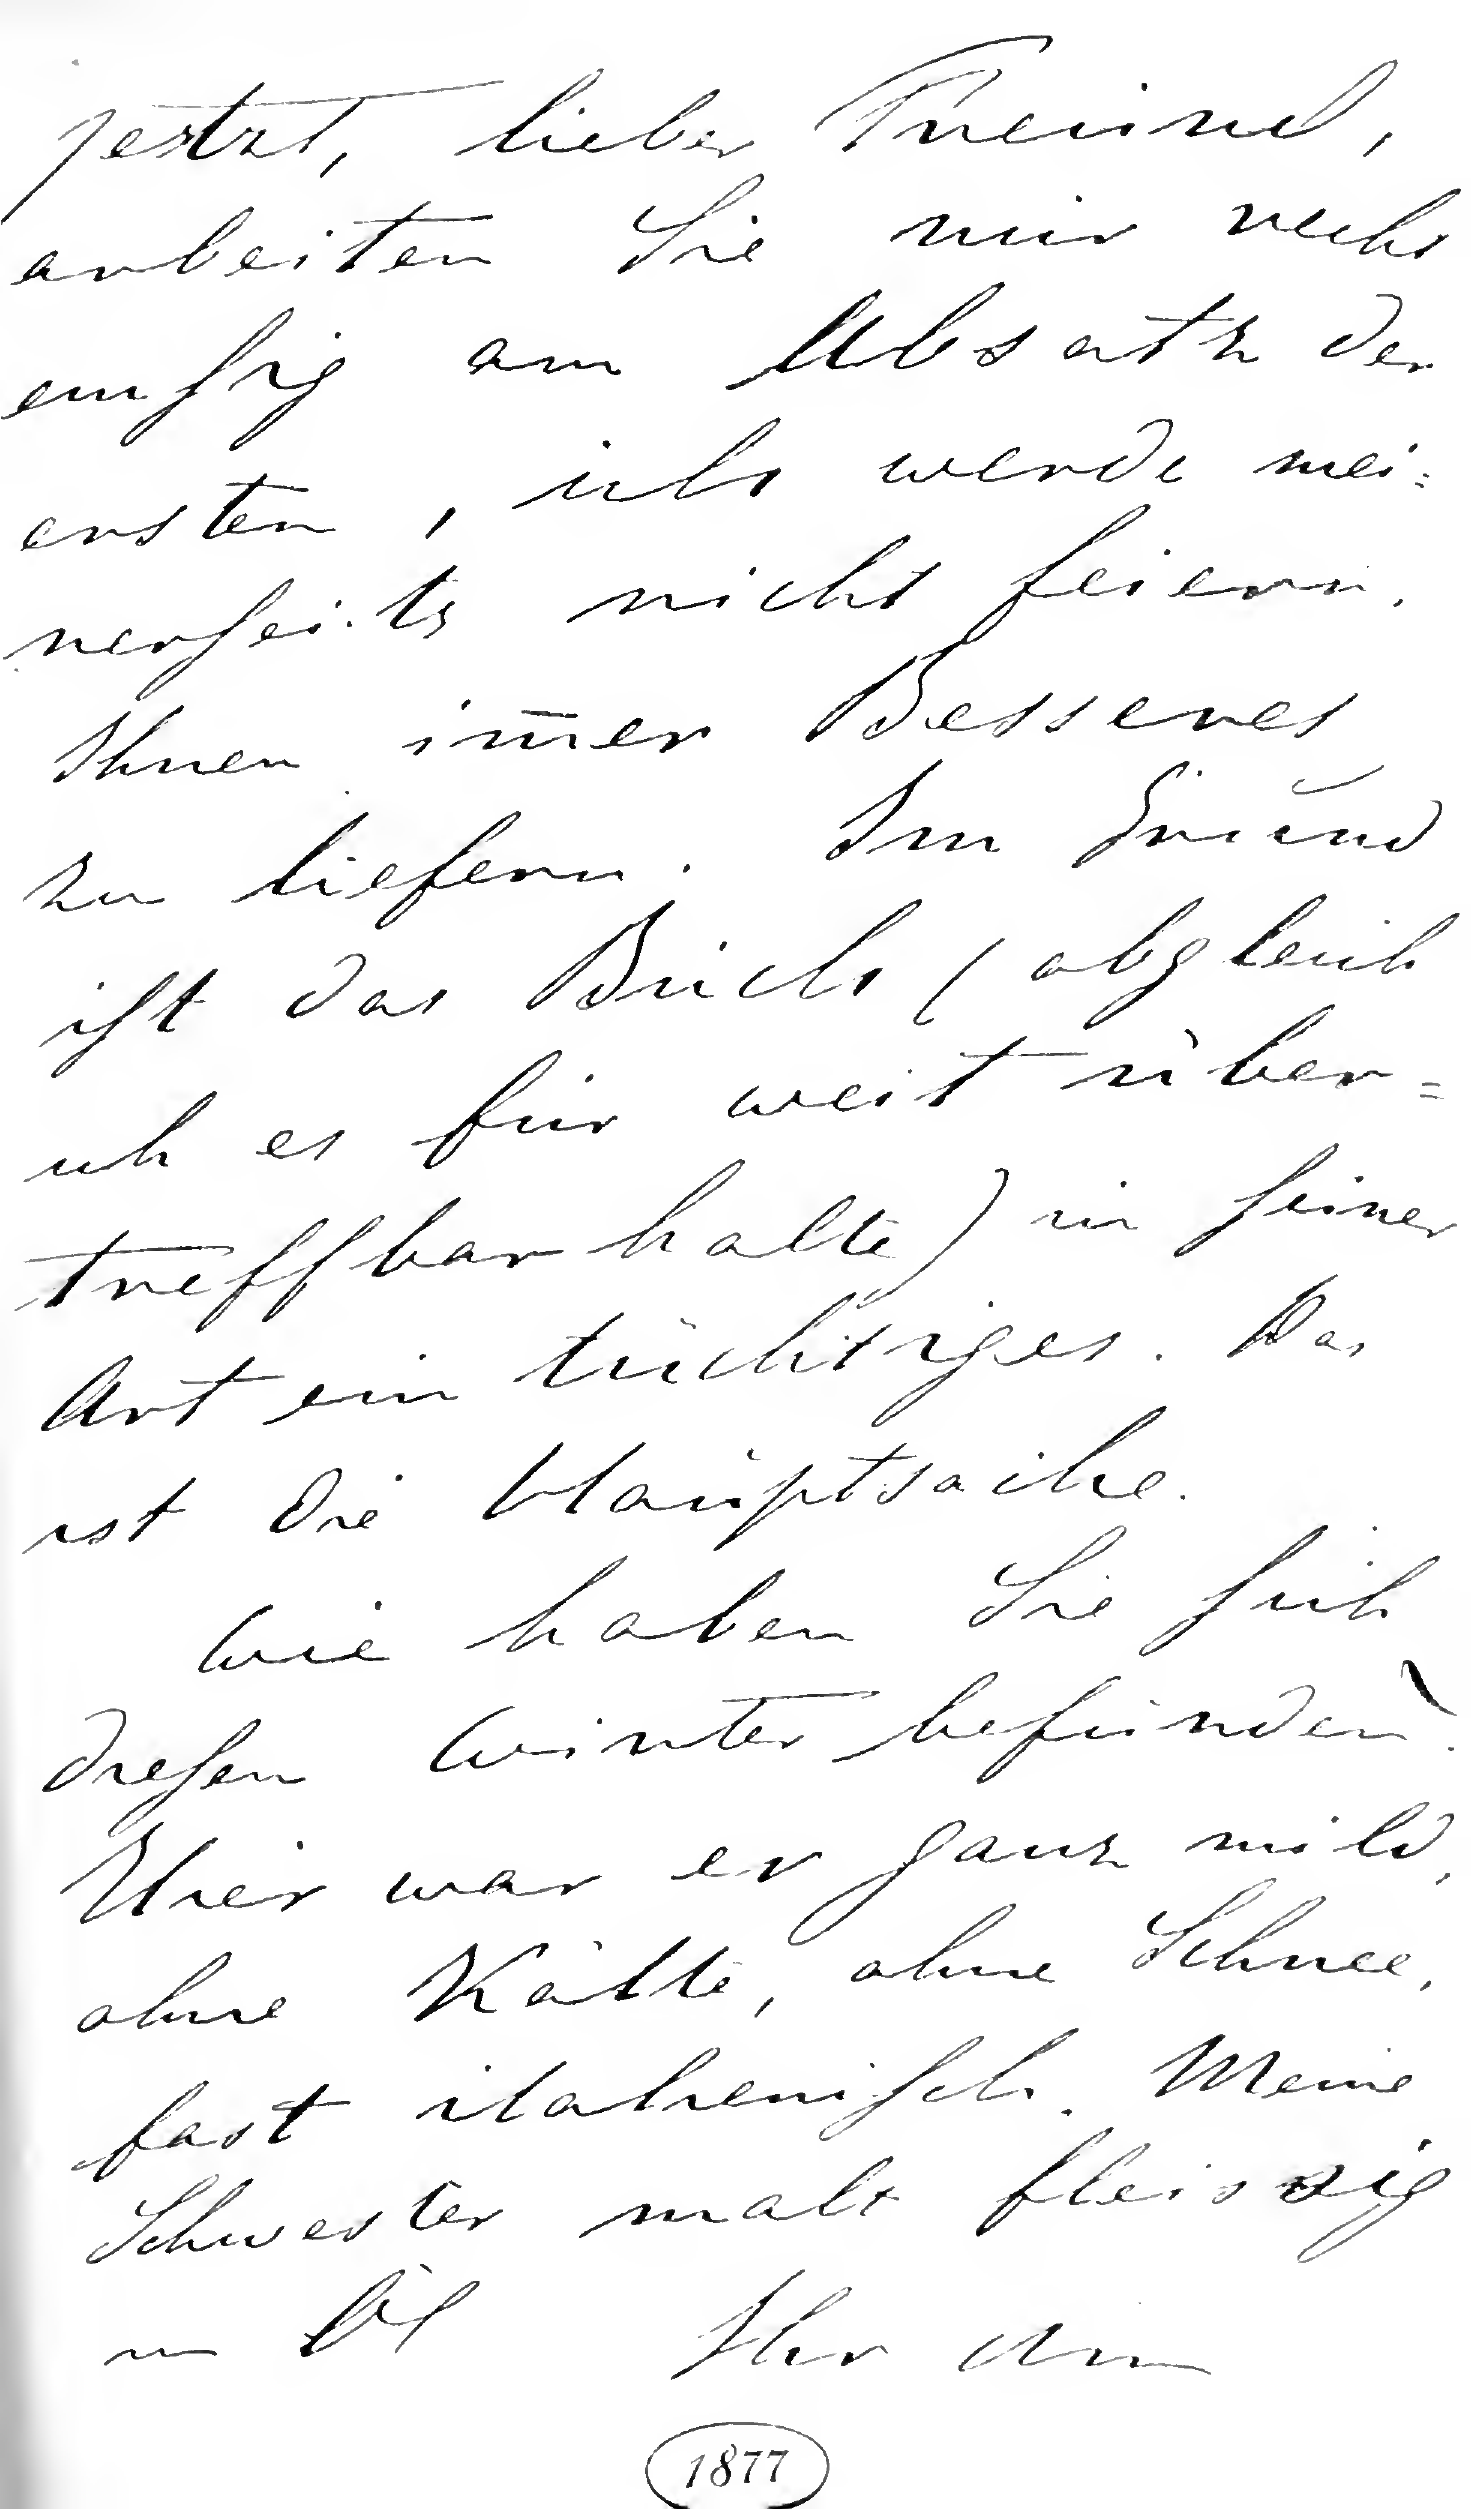 jetzt, lieber Freund,
arbeiten Sie nur recht
emsig am Absatz der
ersten, ich werde mei=
nerseits nicht feiern,
Ihnen im̄er Besseres
zu liefern. Im Grund
ist das Buch (obgleich
ich es für weit über=
treffbar halte) in seiner
Art ein tüchtiges. Das
ist die Hauptsache.
Wie haben Sie sich
diesen Winter befunden?
Hier war er ganz mild,
ohne Kälte, ohne Schnee,
fast italienisch. Meine
Schwester malt fleiszig
in Öl Ihr
1877